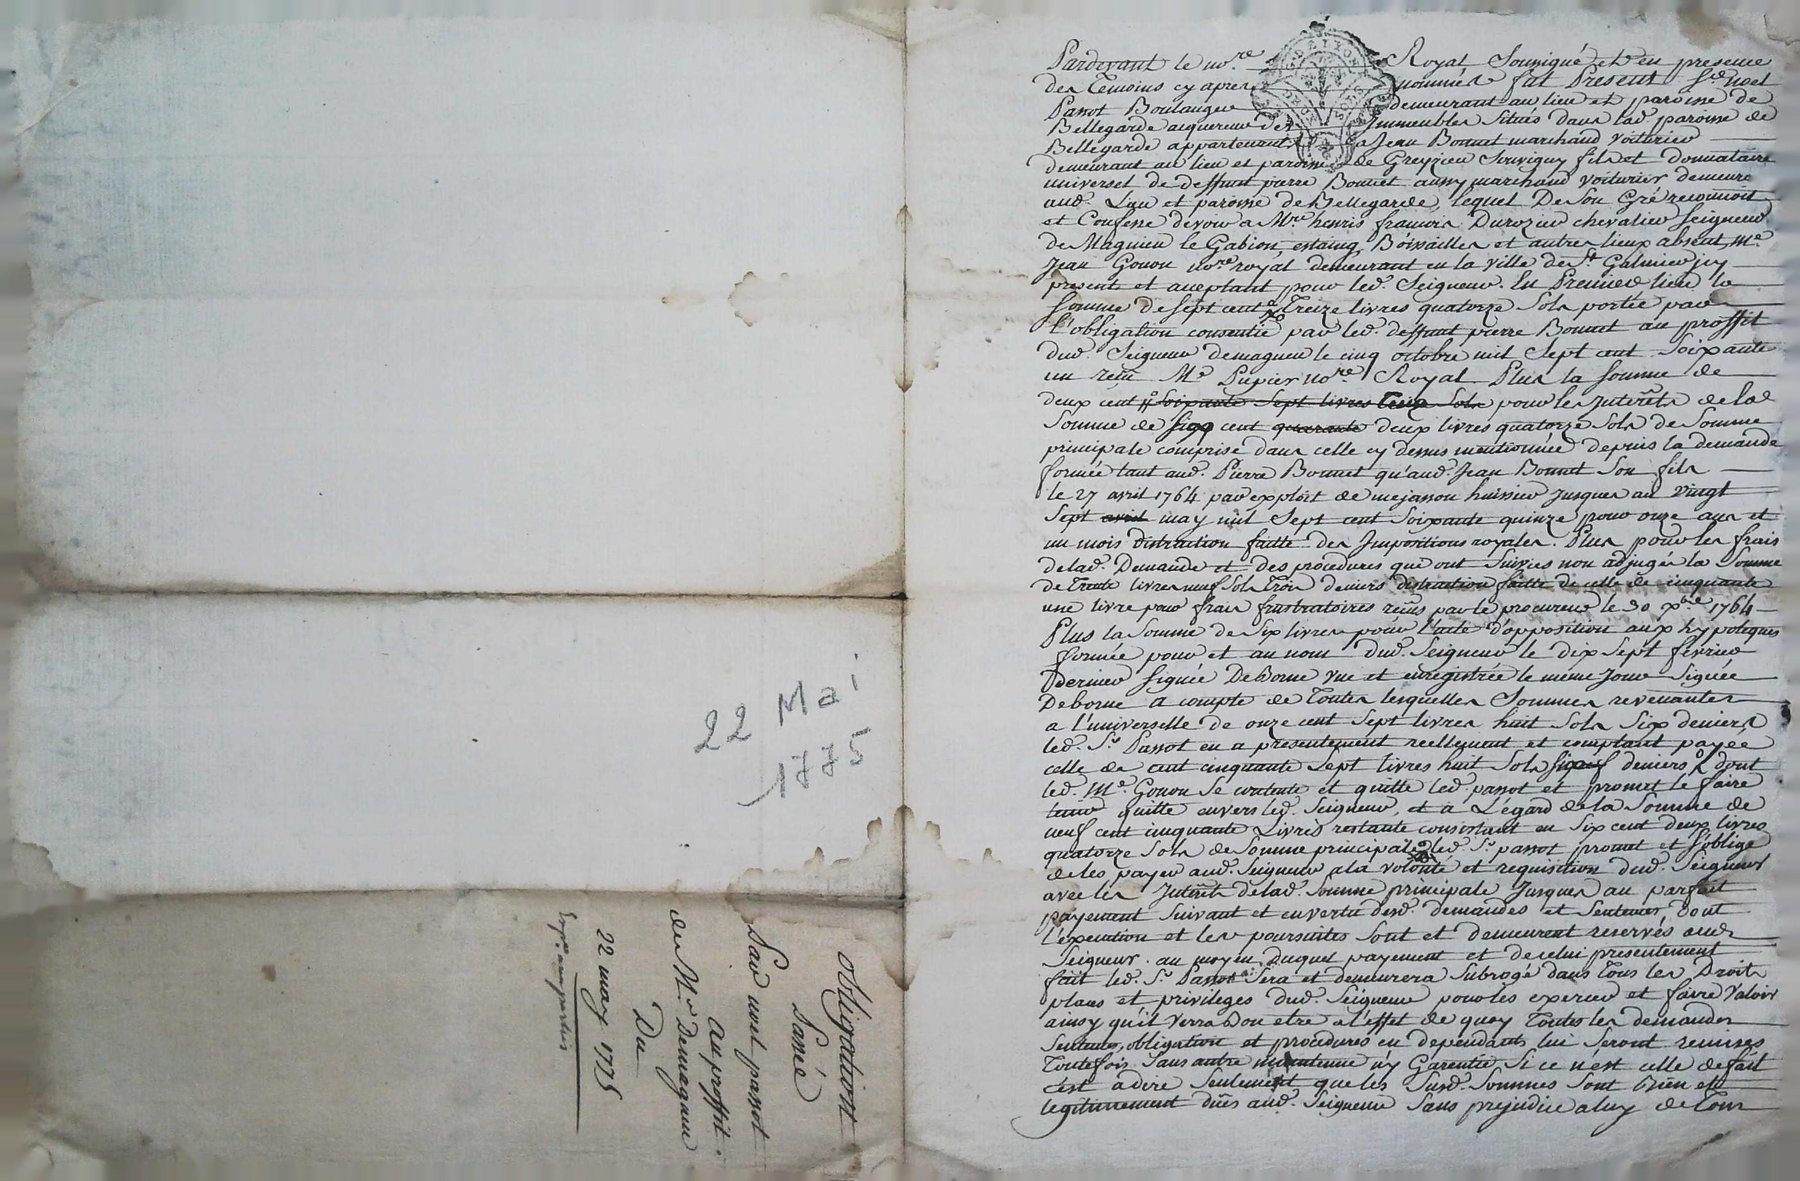 22 Mai
1775
Obligation
Passée
Par noel passot
au proffit
de Mr Demagnieu
Du
22 may 1775
Pardevant le nore Royal Soussigné et en presence
des Temoins cy apres nommés fut Present Sr. noel
Passot Boulanger demeurant au lieu et paroisse de
Bellegarde acquereur des Immeubles situés dans lad. paroisse de
Bellegarde appartenant a Jean Bonnet marchand voiturier
demeurant au lieu et paroisse de Greyzieu Souvigny fils et donnataire
universel de deffunt pierre Bonnet aussy marchand voiturier demeure
aud. Lieu et paroisse de Bellegarde, lequel De Son Gré reconnoit
et Confesse devoir a Mre henris francois Durozier chevalier seigneur
de Magnieu le Gabion, estaing, Boissailles et autres lieux absent, Me.
Jean Gonon nore royal demeurant en la ville de St. Galmier icy
present et acceptant pour led. Seigneur. En Premier lieu la
somme de sept cent Treize livres quatorze sols portée par
l'obligation consentie par led. deffunt pierre Bonnet au proffit
dud. Seigneur demagnieu le cinq octobre mil Sept cent Soixante
un reçu Me Pupier nore Royal Plus la somme de
deux cent soixante sept livres Treize Sols pour les Interêts de lad
Somme de six cent quarante deux livres quatorze Sols de Somme
principale comprise dans celle cy dessus mentionnée depuis la demande
formée tant aud. Pierre Bonnet qu'aud. Jean Bonnet Son fils
le 27 avril 1764 par exploit de mejasson huissier Jusques au vingt
Sept avril may mil Sept cent Soixante quinze pour onze ans et
un mois distraction faitte des Impositions royales. Plus pour les frais
de lad. Demande et des procedures que ont Suivies non adjugés la Somme
de Trente livres neuf Sols Trois deniers distraction faitte de celle de cinquante
une livre pour frais frustratoires reçus par le procureur le 30 xbre 1764
Plus la Somme de Six livres pour l'acte d'opposition aux hypoteques
formée pour et au nom dud. Seigneur le dix Sept fevrier
dernier signée Deborne vue et enregistrée le meme Jour Signée
Deborne a compte de Toutes lesquelles Sommes revenantes
a l'universelle de onze cent Sept livres huit Sols Six deniers
led. Sr. Passot en a presentement reellement et comptant payée
celle de cent cinquante Sept livres huit Sols deniers dont
led. Me. Gonon Se contente et quitte led. passot et promet le faire
tenir quitte envers led. Seigneur, et a L'égard de la Somme de
neuf cent cinquante Livres restante consistant en Six cent deux livres
quatorze Sols de Somme principale led. Sr. passot promet et s'oblige
de les payer aud. Seigneur a la volonté et requisition dud. Seigneur
avec les Interêts de lad. somme principale Jusques au parfait
payement Suivant et en vertu desd. demandes et Sentences, dont
l'execution et les poursuites Sont et demeurent reservés aud.
Seigneur. au moyen duquel payement et de celui presentement
fait led. Sr. Passot Sera et demeurera Subrogé dans Tous les Droits
places et privileges dud. Seigneur pour les exercer et faire Valoir
ainsy qu'il verra bon etre a l'effet de quoy Toutes les demandes
Sentences, obligation et procedures en dependants lui Seront remises
Toutefois Sans autre maintenue n'y Garentie, Si ce n'est celle de fait
c'est à dire Seulement que les Susd. Sommes Sont bien et
legitimement düés aud. Seigneur Sans prejudice a luy de Tous